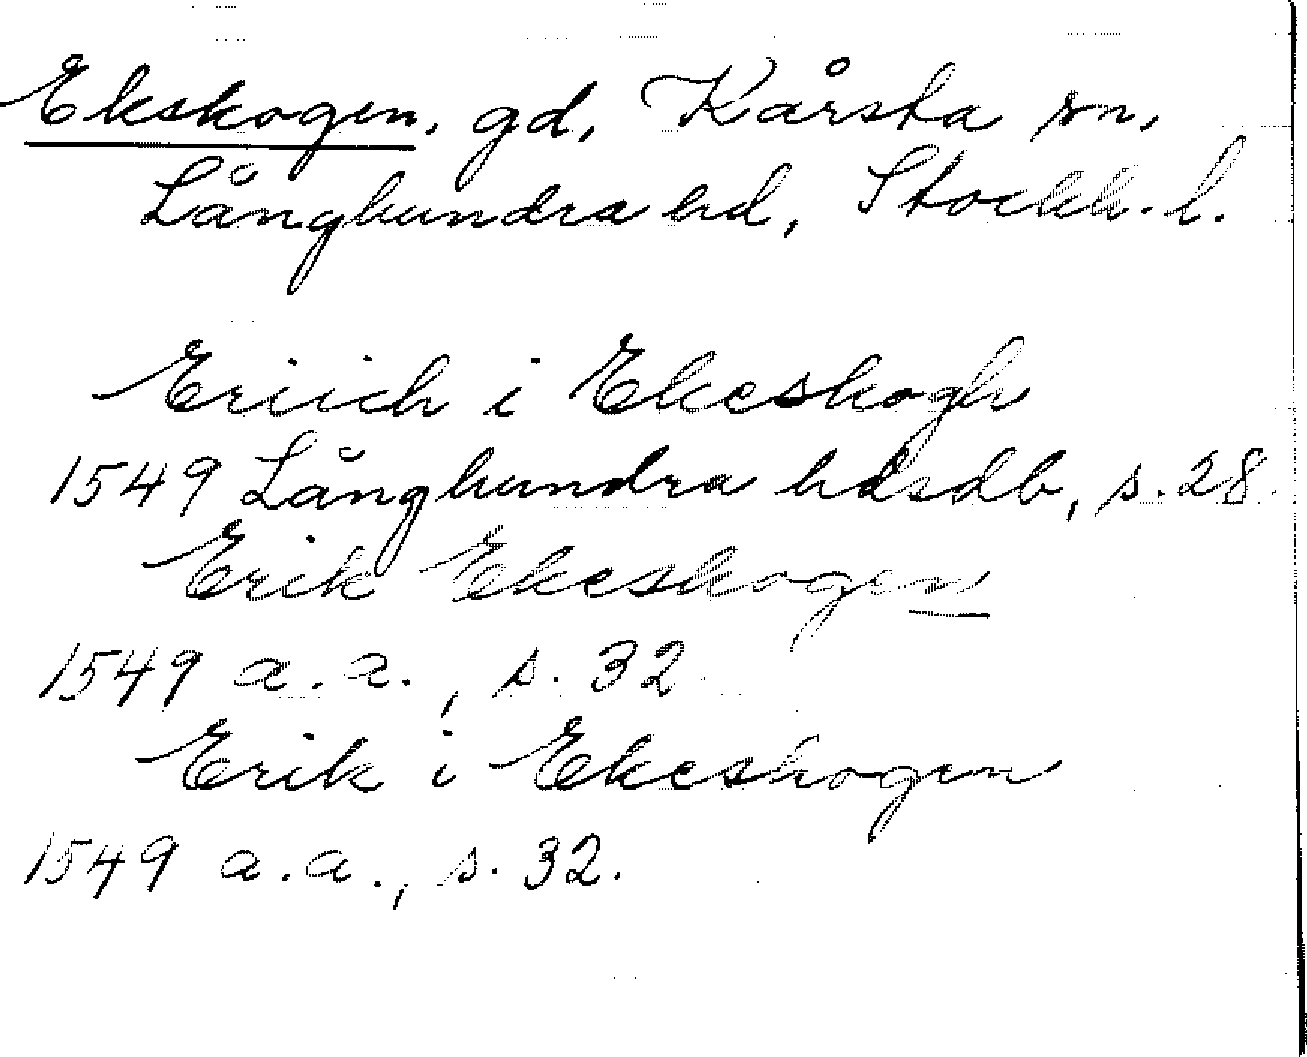 Ekskogen, gd, Kårsta sn,
Långhundra hd, Stockh. l.
Eriich i Ekeskogh
1549 Långhundra hdsdb, s. 28.
Erik Ekeskogen
1549 a.a., s. 32
Erik i Ekeskogen
1549 a.a., s. 32.